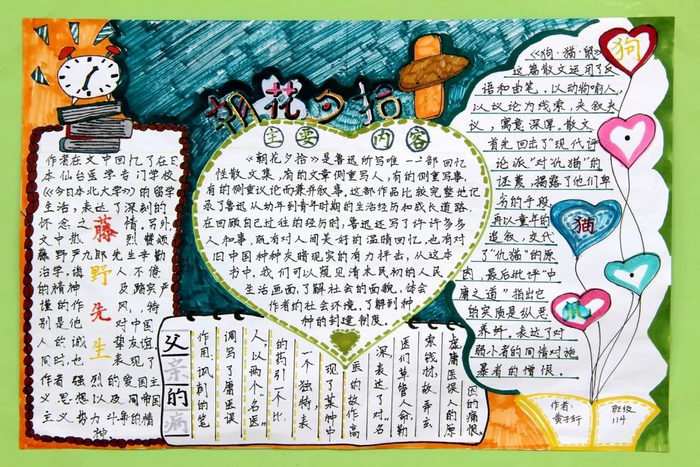 朝花夕拾
主要内容
《朝花夕拾》是鲁迅所写唯一一部回忆
性散文集,有的文章侧重写人,有的侧重写事,
有的侧重议论而兼并叙事,这部作品比较完整地记
录了鲁迅从幼年到青年时期的生活经历和成长道路.
在回顾自己过往的经历时,鲁迅还写了许许多多
人和事,既有对人间美好的温晴回忆,也有对
旧中国种种灰暗现实的有力抨击,从这本
书中,我们可以窥见清末民初的人民
生活画面,了解社会的面貌,体会
作者的社会环境,了解到种
种的封建制度.
作者在文中回忆了在日
本仙台医学专门学校
(《今日本北大学》)的留学
生活,表达了深刻的
怀念之情,另外
文中散烈赞颂
藤野严九郎先生辛勤
治学,诲人不倦
的精神及踏实严
谨的作风,特
别是他对中国
人的诚挚友谊,
同时,也表现了
作者强烈的爱国主
义思想以及同帝国
主义势力斗争的情
神.
藤野先生
《狗·猫·鼠》
这篇散文运用了反
语和曲笔,以动物喻人,
以议论为线索,夹叙夹
议,寓意深厚,散文
首先回击了"现代评
论派"对"仇猫"的
诬蔑,揭露了他们卑
劣的手段,
再以童年的
追叙,交代
了"仇猫"的原
因,最后批呼"中
庸之道"指出它
的实质是纵恶
养奸,表达了对
弱小者的同情对施
暴者的憎恨.
狗
猫
父亲的病
因的痛恨.
庸医误人的原
索钱财,故弄玄
医们草菅人命,勒
深,表达了对"名
医的故作高
现了某种中
一个独特,表
的药引一个比
人,以两个"名医"
调写了庸医误
作用,讽刺的笔
作者:
黄子轩
班级
114